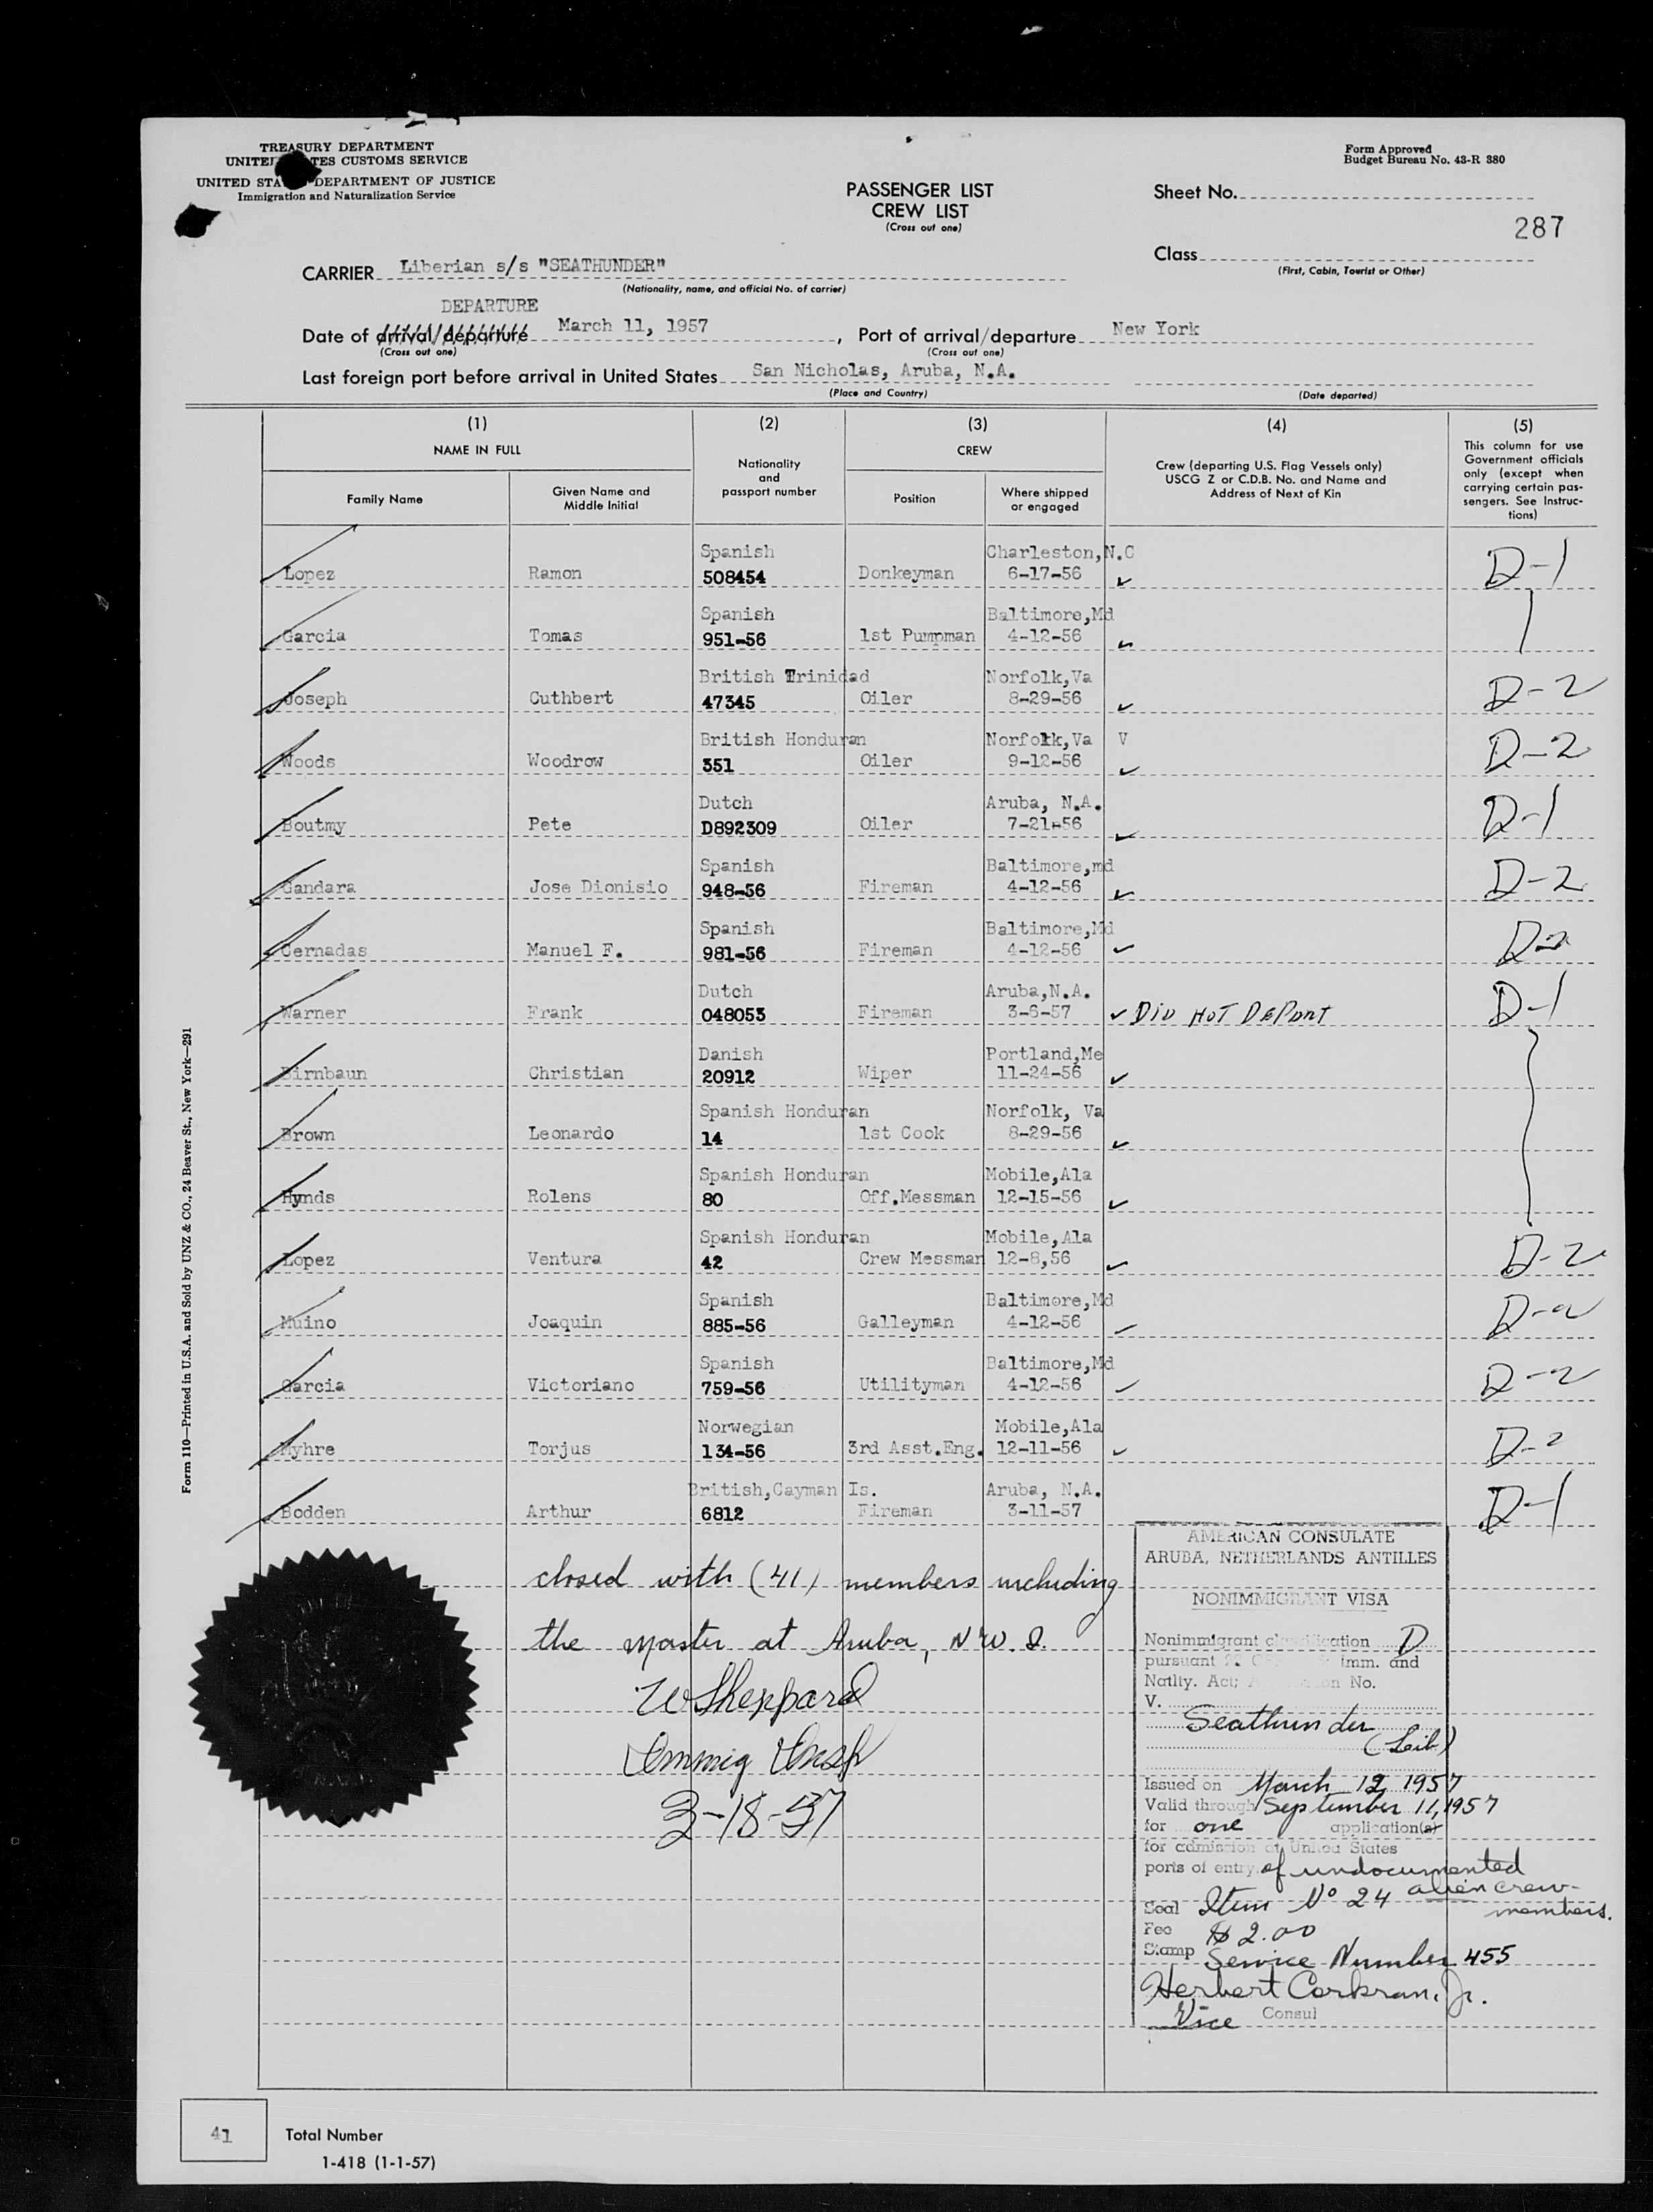 TREASURY DEPARTMENT
UNITED STATES CUSTOMS SERVICE
UNITED STATES DEPARTMENT OF JUSTICE
Immigration and Naturalization Service
Form Approved
Budget Bureau No. 43-R 380
PASSENGER LIST
CREW LIST
(Cross out one)
Sheet No.
287
Class
(First, Cabin, Tourist or Other)
CARRIER Liberian s/s "SEATHUNDER"
(Nationality, name, and official No. of carrier)
DEPARTURE
Date of arrival/departure March 11, 1957, Port of arrival/departure New York
(Cross out one) (Cross out one)
Last foreign port before arrival in United States San Nicholas, Aruba, N.A.
(Place and Country) (Date departed)
(1) (2) (3) (4) (5)
NAME IN FULL
Family Name
Given Name and Middle Initial
Nationality and passport number
CREW
Position
Where shipped or engaged
Crew (departing U.S. Flag Vessels only)
USCG Z or C.D.B. No. and Name and
Address of Next of Kin
This column for use
Government officials
only (except when
carrying certain pas-
sengers. See Instruc-
tions)
Spanish Charleston,N.C
Lopez Ramon 508454 Donkeyman 6-17-56 ✓ D-1
Spanish Baltimore,Md
Garcia Tomas 951-56 1st Pumpman 4-12-56 ✓
British Trinidad Norfolk,Va
Joseph Cuthbert 47345 Oiler 8-29-56 ✓ D-2
British Honduran Norfolk,Va V
Woods Woodrow 351 Oiler 9-12-56 ✓ D-2
Dutch Aruba, N.A.
Boutmy Pete D892309 Oiler 7-21-56 ✓ D-1
Spanish Baltimore,md
Gandara Jose Dionisio 948-56 Fireman 4-12-56 ✓ D-2
Spanish Baltimore,Md
Cernadas Manuel F. 981-56 Fireman 4-12-56 ✓ D-2
Dutch Aruba,N.A.
Warner Frank 048053 Fireman 3-6-57 ✓ DID NOT DEPART D-1
Danish Portland,Me
Birnbaun Christian 20912 Wiper 11-24-56 ✓
Spanish Honduran Norfolk, Va
Brown Leonardo 14 1st Cook 8-29-56 ✓
Spanish Honduran Mobile,Ala
Hynds Rolens 80 Off.Messman 12-15-56 ✓
Spanish Honduran Mobile,Ala
Lopez Ventura 42 Crew Messman 12-8,56 ✓ D-2
Spanish Baltimore,Md
Muino Joaquin 885-56 Galleyman 4-12-56 ✓ D-2
Spanish Baltimore,Md
Garcia Victoriano 759-56 Utilityman 4-12-56 ✓ D-2
Norwegian Mobile,Ala
Myhre Torjus 134-56 3rd Asst.Eng. 12-11-56 ✓ D-2
British,Cayman Is. Aruba, N.A.
Bodden Arthur 6812 Fireman 3-11-57 D-1
closed with (41) members including
the master at Aruba, N.W.I.
W Sheppard
Immig Insp
3-18-57
AMERICAN CONSULATE
ARUBA, NETHERLANDS ANTILLES
NONIMMIGRANT VISA
Nonimmigrant classification D
pursuant Imm. and
Natlty. Act; No.
V.
Seathunder
(Lib)
Issued on March 12, 1957
Valid through September 11, 1957
for one application(s)
for admission at United States
ports of entry of undocumented
alien crew-
members.
Seal Item No 24
Fee $2.00
Stamp Service Number 455
Herbert Corkran, Jr.
Vice Consul
Form 110—Printed in U.S.A. and Sold by UNZ & CO., 24 Beaver St., New York—291
41 Total Number
1-418 (1-1-57)